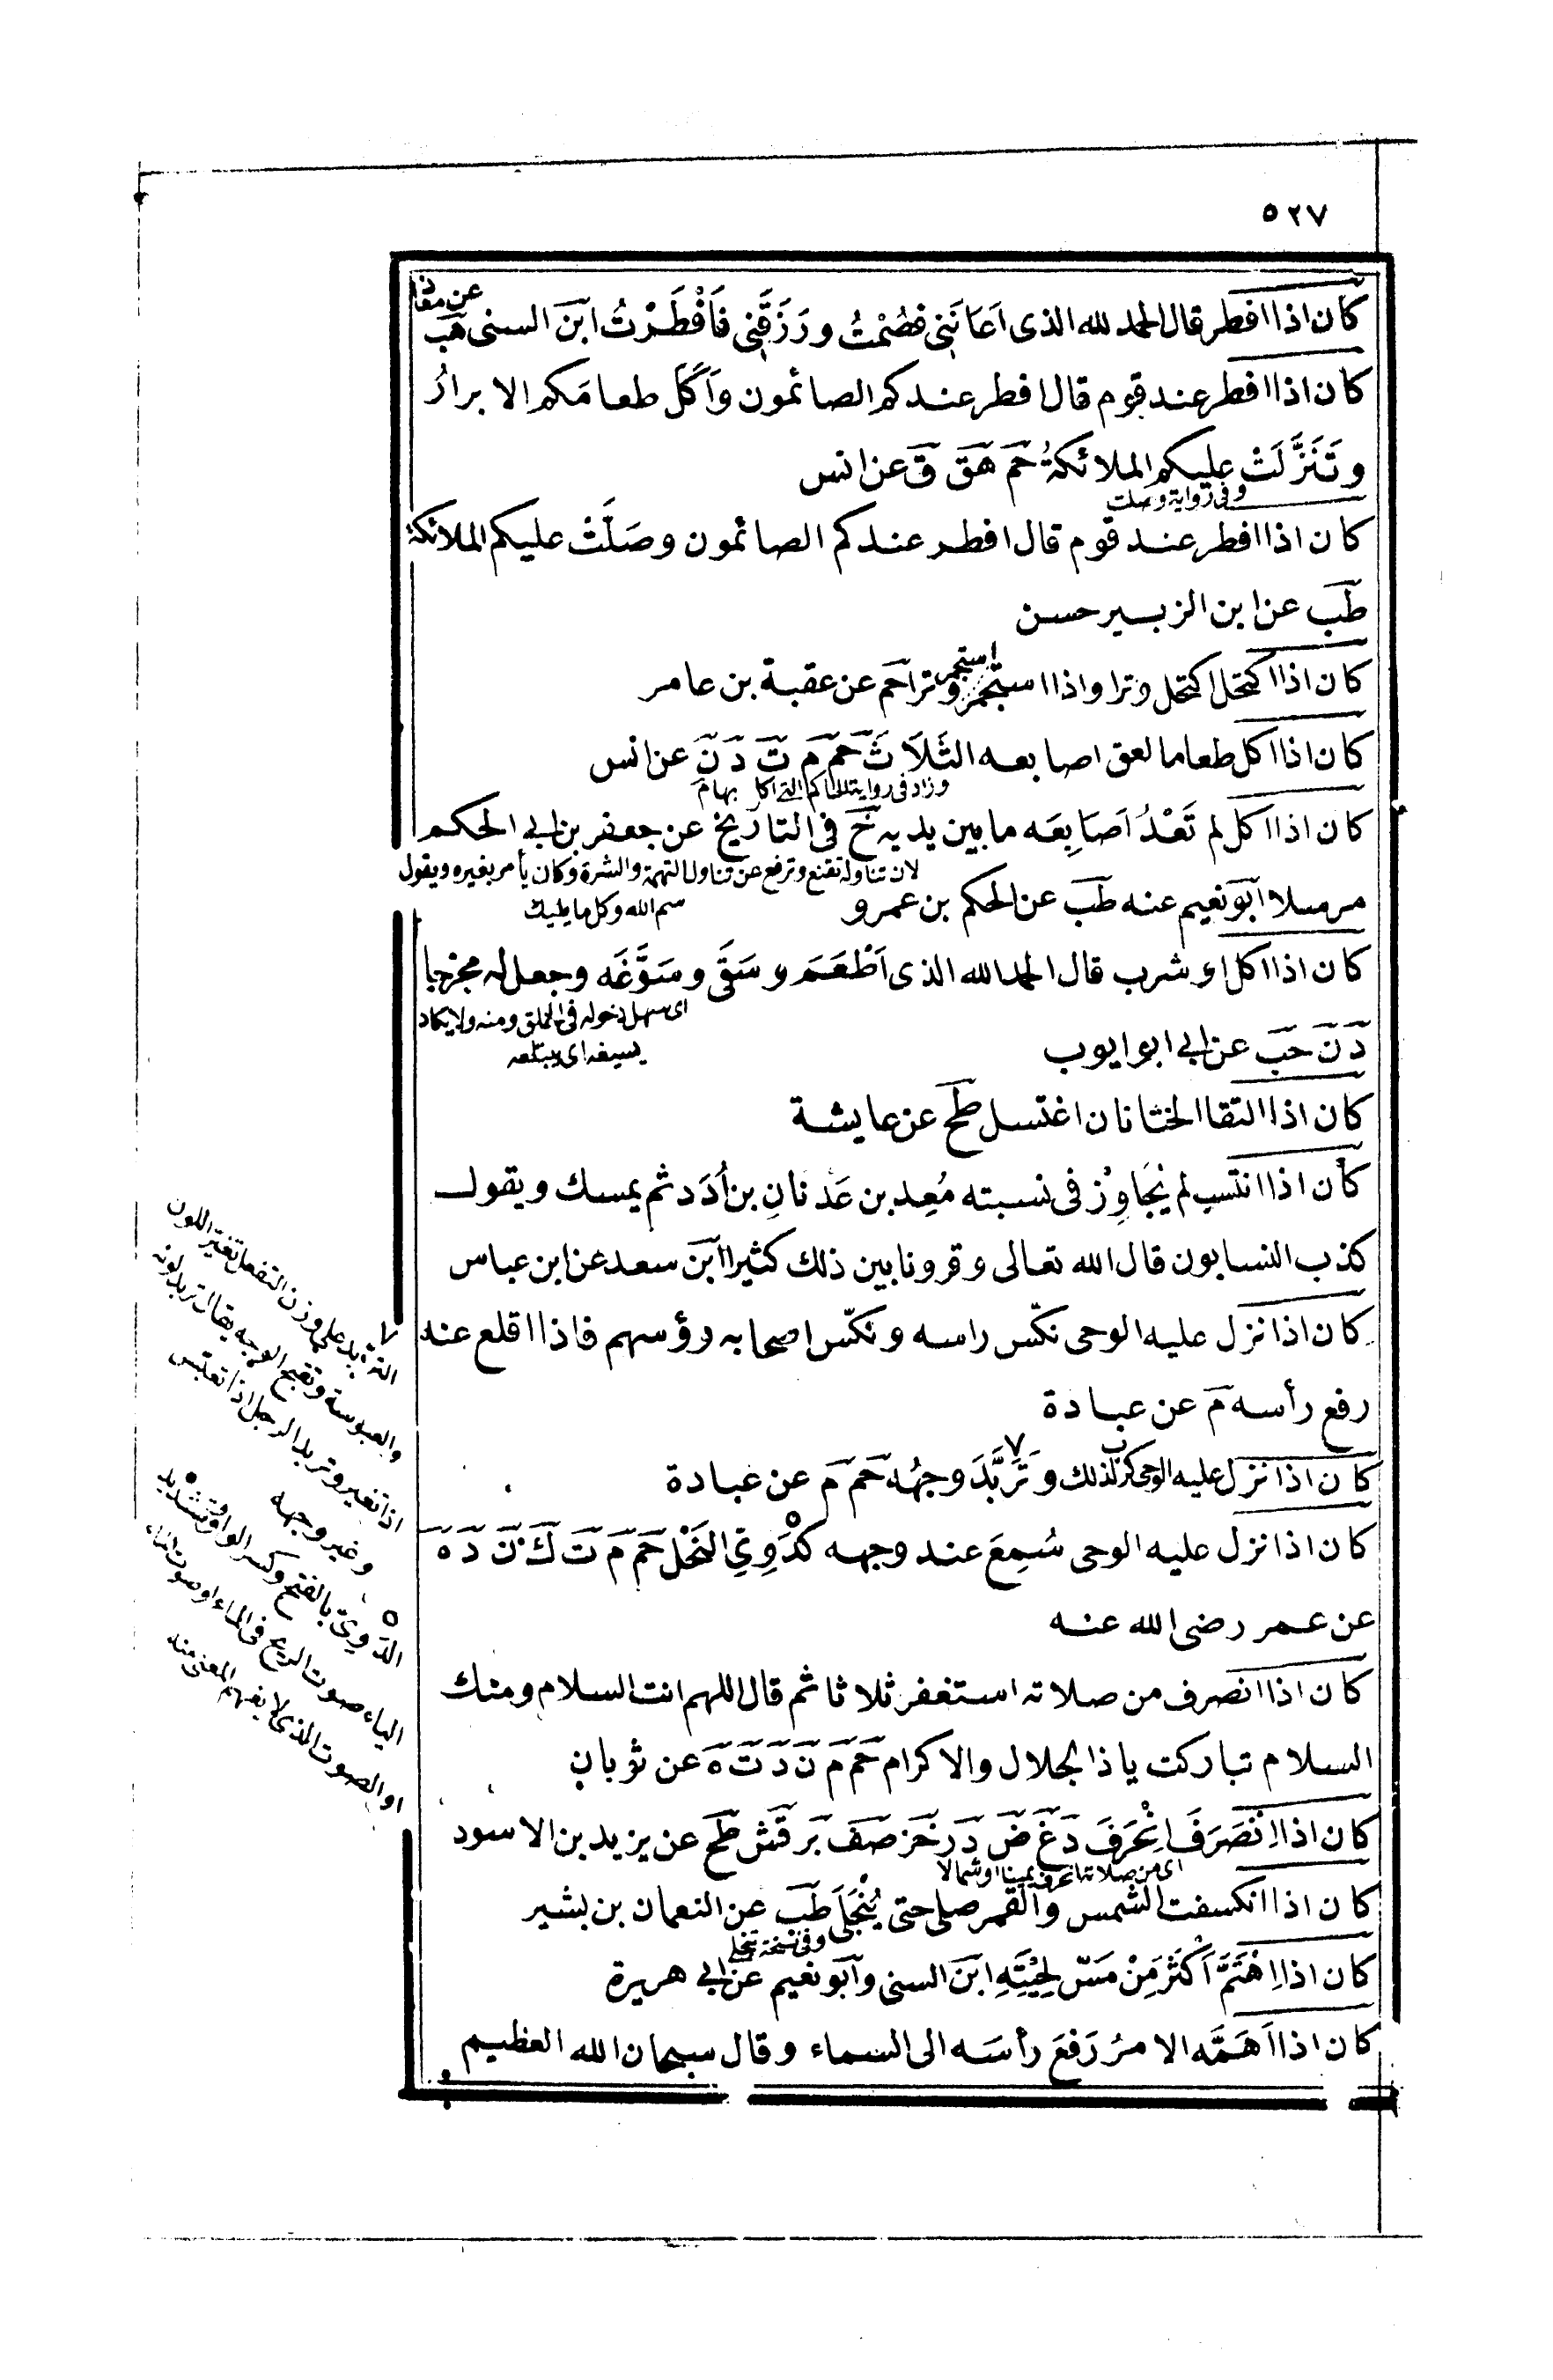 ٥٢٧
كان اذا افطر قال الحمد لله الذى اَعَانَنِى فصُمْتُ ورَزَقَنِى فَاَفْطَرْتُ ابن السنى هب عن معاذ
كان اذا افطر عند قوم قال افطر عندكم الصائمون وَاَكَلَ طعامَكم الابرارُ
وتَنَزَّلَتْ عليكم الملائكةُ حم هق ق عن انس
وفى رواية وصلت
كان اذا افطر عند قوم قال افطر عندكم الصائمون وصَلَّتْ عليكم الملائكة
طب عن ابن الزبير حسن
كان اذا اكتحل اكتحل وترا واذا استجمر استجمر وترا حم عن عقبة بن عامر
كان اذا اكل طعاما لعق اصابعه الثَلَاثَ حم م ت د ن عن انس
وزاد فى رواية للحاكم التى اكل بها م
كان اذا اكل لم تَعْدُ اَصَابِعَه ما بين يديه خ فى التاريخ عن جعفر بن ابى الحكم
لان تناوله تقنع وترفع عن تناول التهمة والشرة وكان يأمر بغيره ويقول
مرسلا ابو نعيم عنه طب عن الحكم بن عمرو
سم الله وكل ما يليك
كان اذا اكل او شرب قال الحمد لله الذى اَطْعَمَ وسَقَى وسَوَّغَه وجعل له مخرجا
اى سهل دخوله فى الحلق ومنه ولا يكاد
د ن حب عن ابى ايوب
يسيغه اى يبتلعه
كان اذا التقا الختانان اغتسل طح عن عايشة
كان اذا انتسب لم يُجَاوِزْ فى نسبته مُعِد بن عَدنانِ بن اُدَد ثم يمسك ويقول
كذب النسابون قال الله تعالى وقرونا بين ذلك كثيرا ابن سعد عن ابن عباس
كان اذا نزل عليه الوحى نكّس راسه ونكّس اصحابه رؤسهم فاذا اقلع عنه
رفع رأسه م عن عبادة
كان اذا نزل عليه الوحى كرب لذلك وتَرَبَّدَ وجهُه حم م عن عبادة
كان اذا نزل عليه الوحى سُمِعَ عند وجهه كدَوِىِّ النَحْل حم م ت ك ن د ه
عن عمر رضى الله عنه
كان اذا انصرف من صلاته استغفر ثلاثا ثم قال اللهم انت السلام ومنك
السلام تباركت ياذا الجلال والاكرام حم م ن د ت ه عن ثوبان
كان اذا اِنْصَرَفَ اِنْحَرَفَ د غ ض در خز صف بر قش طح عن يزيد بن الاسود
اى من صلاته انحرف يمينا او شمالا
كان اذا انكسفت الشمس والقمر صلى حتى يُنْجَلَى طب عن النعمان بن بشير
وفى نسخة تنجلى
كان اذا اِهْتَمَّ أَكْثَرَ مِنْ مَسّ لِحْيَتِهِ ابن السنى وابو نعيم عن ابى هريرة
كان اذا اَهَمَّه الامرُ رَفعَ رأسَه الى السماء وقال سبحان الله العظيم
٧ التربد على وزن التفعل تغير اللون
والعبوسة وتقبح الوجه يقال تربد لونه
اذا تغير وتربد الرجل اذا تعبس
وغير وجهه
٥ الدَوِىّ بالفتح وكسر الواو وتشديد
الياء صوت الريح فى الماء او صوت
او الصوت الذى لا يفهم المعنى منه